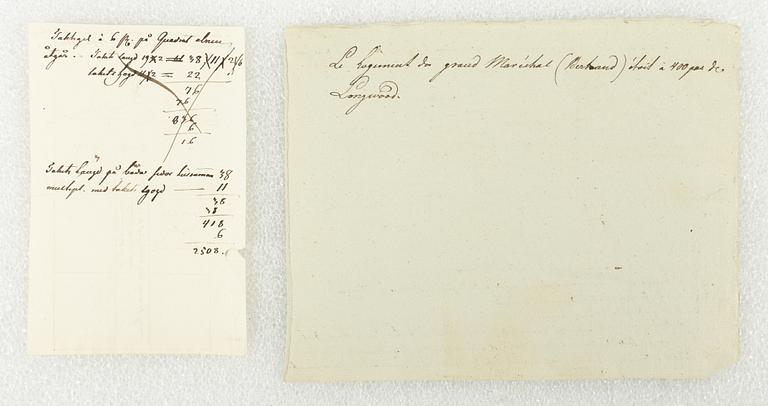 Taktegel à 6 st. på Quadrat alnen
åtgår. Takets Längd 19×2 = 38 × 11 × 2 × 6
takets högd = 22
76
76
836
6
16
Takets Längd på båda sidor tillsamman 38
multipl. med takets högd — 11
38
38
418
6
2508.
Le Logement du grand Maréchal (Bertrand) étoit à 400 pas de
Longwood.